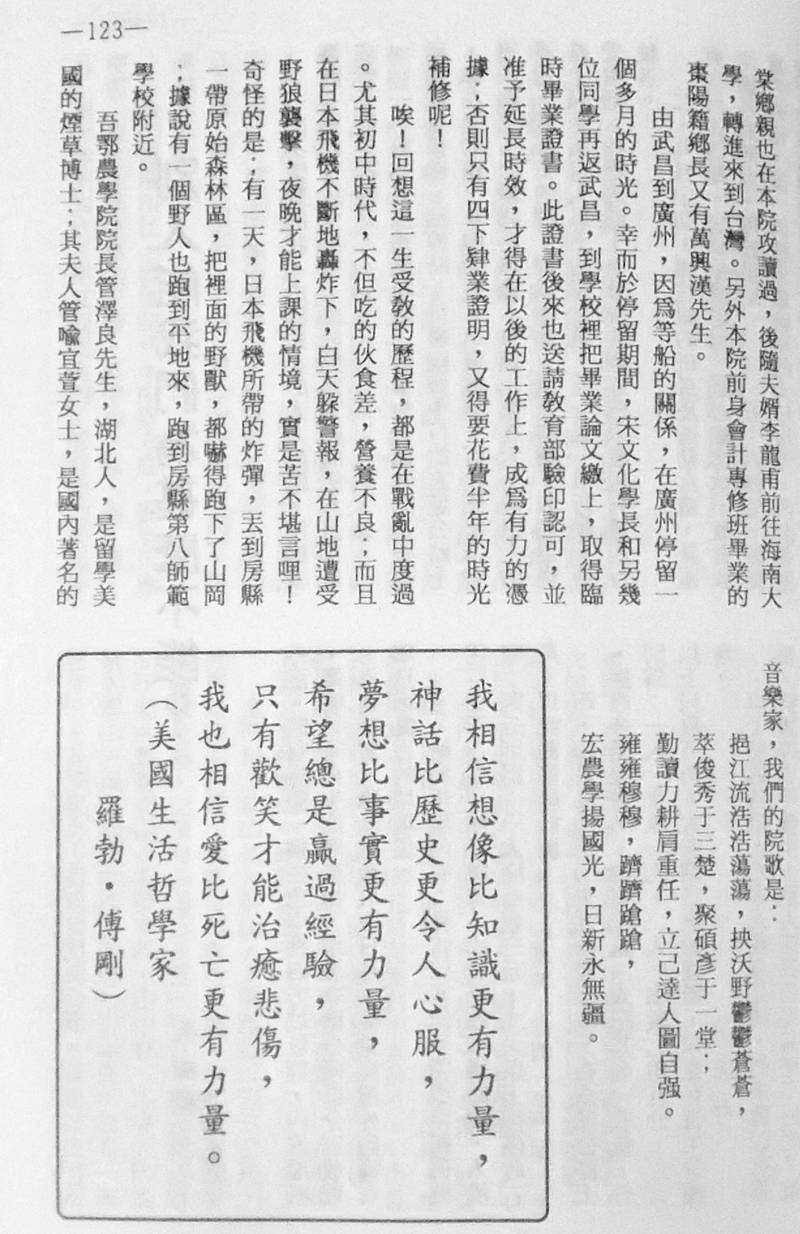 —123—
棠鄉親也在本院攻讀過，後隨夫婿李龍甫前往海南大
學，轉進來到台灣。另外本院前身會計專修班畢業的
棗陽籍鄉長又有萬興漢先生。
由武昌到廣州，因爲等船的關係，在廣州停留一
個多月的時光。幸而於停留期間，宋文化學長和另幾
位同學再返武昌，到學校裡把畢業論文繳上，取得臨
時畢業證書。此證書後來也送請教育部驗印認可，並
准予延長時效，才得在以後的工作上，成爲有力的憑
據；否則只有四下肄業證明，又得要花費半年的時光
補修呢！
唉！回想這一生受教的歷程，都是在戰亂中度過
。尤其初中時代，不但吃的伙食差，營養不良；而且
在日本飛機不斷地轟炸下，白天躲警報，在山地遭受
野狼襲擊，夜晚才能上課的情境，實是苦不堪言哩！
奇怪的是；有一天，日本飛機所帶的炸彈，丟到房縣
一帶原始森林區，把裡面的野獸，都嚇得跑下了山岡
；據說有一個野人也跑到平地來，跑到房縣第八師範
學校附近。
吾鄂農學院院長管澤良先生，湖北人，是留學美
國的煙草博士；其夫人管喻宜萱女士，是國內著名的
音樂家，我們的院歌是：
挹江流浩浩蕩蕩，抰沃野鬱鬱蒼蒼，
萃俊秀于三楚，聚碩彥于一堂；
勤讀力耕肩重任，立己達人圖自强。
雍雍穆穆，躋躋蹌蹌，
宏農學揚國光，日新永無疆。
我相信想像比知識更有力量，
神話比歷史更令人心服，
夢想比事實更有力量，
希望總是贏過經驗，
只有歡笑才能治癒悲傷，
我也相信愛比死亡更有力量。
（美國生活哲學家
羅勃・傅剛）